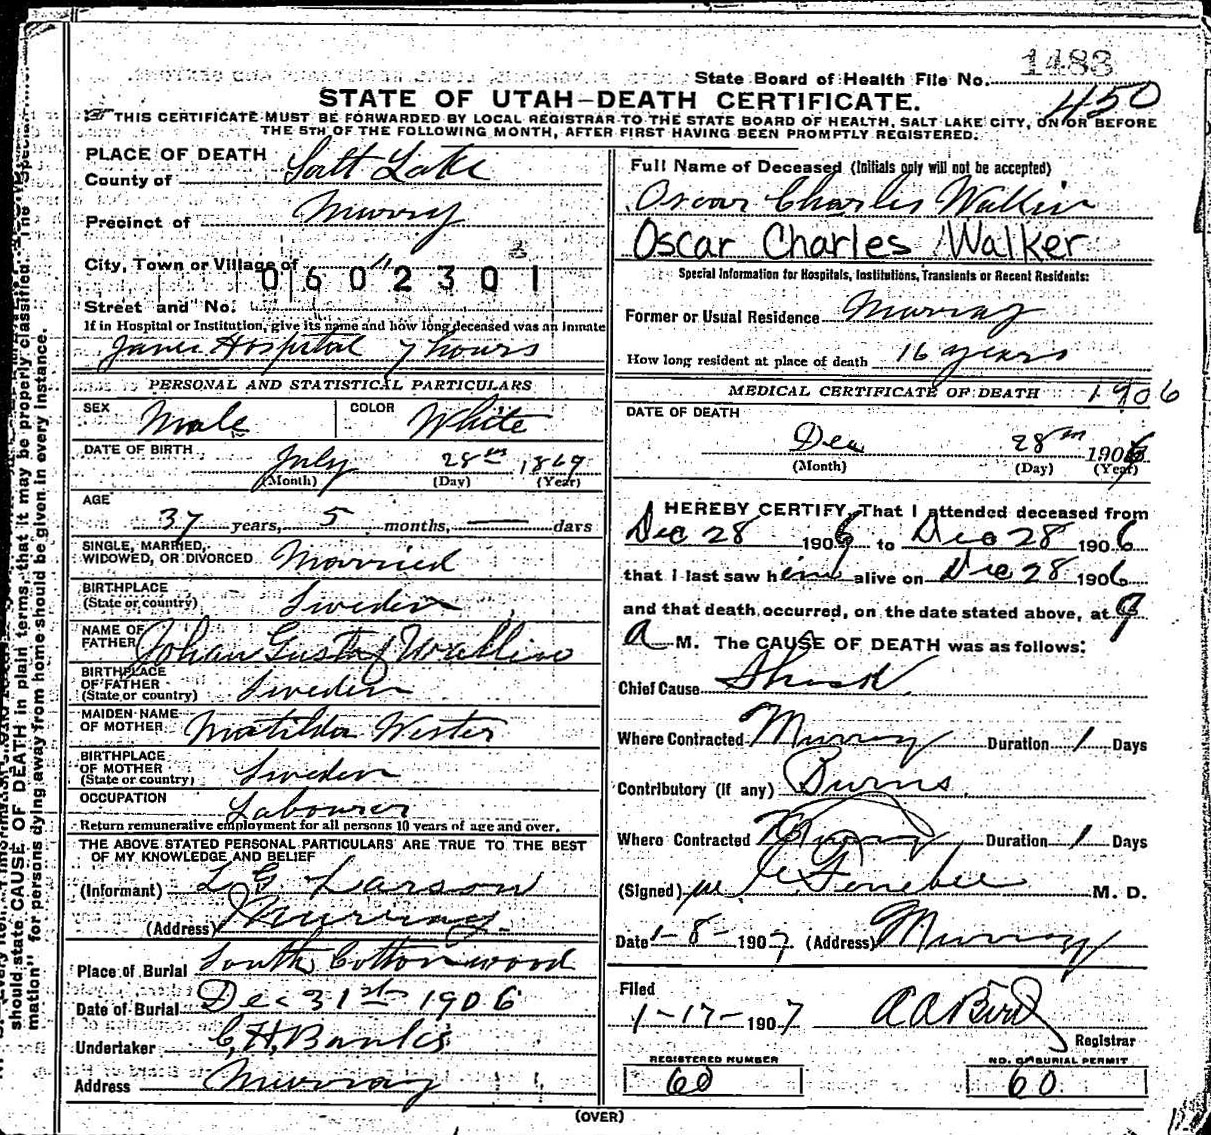 State Board of Health File No. 1483
450
STATE OF UTAH—DEATH CERTIFICATE.
THIS CERTIFICATE MUST BE FORWARDED BY LOCAL REGISTRAR TO THE STATE BOARD OF HEALTH, SALT LAKE CITY, ON OR BEFORE
THE 5TH OF THE FOLLOWING MONTH, AFTER FIRST HAVING BEEN PROMPTLY REGISTERED.
PLACE OF DEATH
County of Salt Lake
Precinct of Murray
City, Town or Village of "
0602301
Street and No.
If in Hospital or Institution, give its name and how long deceased was an inmate
Hospital 7 hours
PERSONAL AND STATISTICAL PARTICULARS
SEX Male COLOR White
DATE OF BIRTH July 28th, 1869
(Month) (Day) (Year)
AGE 37 years, 5 months, — days
SINGLE, MARRIED,
WIDOWED, OR DIVORCED Married
BIRTHPLACE
(State or country) Sweden
NAME OF
FATHER Johan Gustaf Wallin
BIRTHPLACE
OF FATHER
(State or country) Sweden
MAIDEN NAME
OF MOTHER Matilda Wester
BIRTHPLACE
OF MOTHER
(State or country) Sweden
OCCUPATION Labourer
Return remunerative employment for all persons 10 years of age and over.
THE ABOVE STATED PERSONAL PARTICULARS ARE TRUE TO THE BEST
OF MY KNOWLEDGE AND BELIEF
(Informant) L G Larson
(Address) Murray
Place of Burial South Cottonwood
Date of Burial Dec 31st 1906
Undertaker C. H. Banks
Address Murray
Full Name of Deceased (Initials only will not be accepted)
Oscar Charles Walkin
Oscar Charles Walker
Special Information for Hospitals, Institutions, Transients or Recent Residents:
Former or Usual Residence Murray
How long resident at place of death 16 years
MEDICAL CERTIFICATE OF DEATH 1906
DATE OF DEATH
Dec 28th 1906
(Month) (Day) (Year)
I HEREBY CERTIFY, That I attended deceased from
Dec 28 1906 to Dec 28 1906
that I last saw him alive on Dec 28 1906
and that death occurred, on the date stated above, at 9
a M. The CAUSE OF DEATH was as follows:
Chief Cause Shock
Where Contracted Murray Duration 1 Days
Contributory (if any) Burns
Where Contracted Murray Duration 1 Days
(Signed) M. D.
Date 1-8-1907. (Address) Murray
Filed
1-17-1907 A A Bird
Registrar
REGISTERED NUMBER
60
NO. OF BURIAL PERMIT
60
(OVER)
should state CAUSE OF DEATH in plain terms, that it may be properly classified. The "Special
mation" for persons dying away from home should be given in every instance.